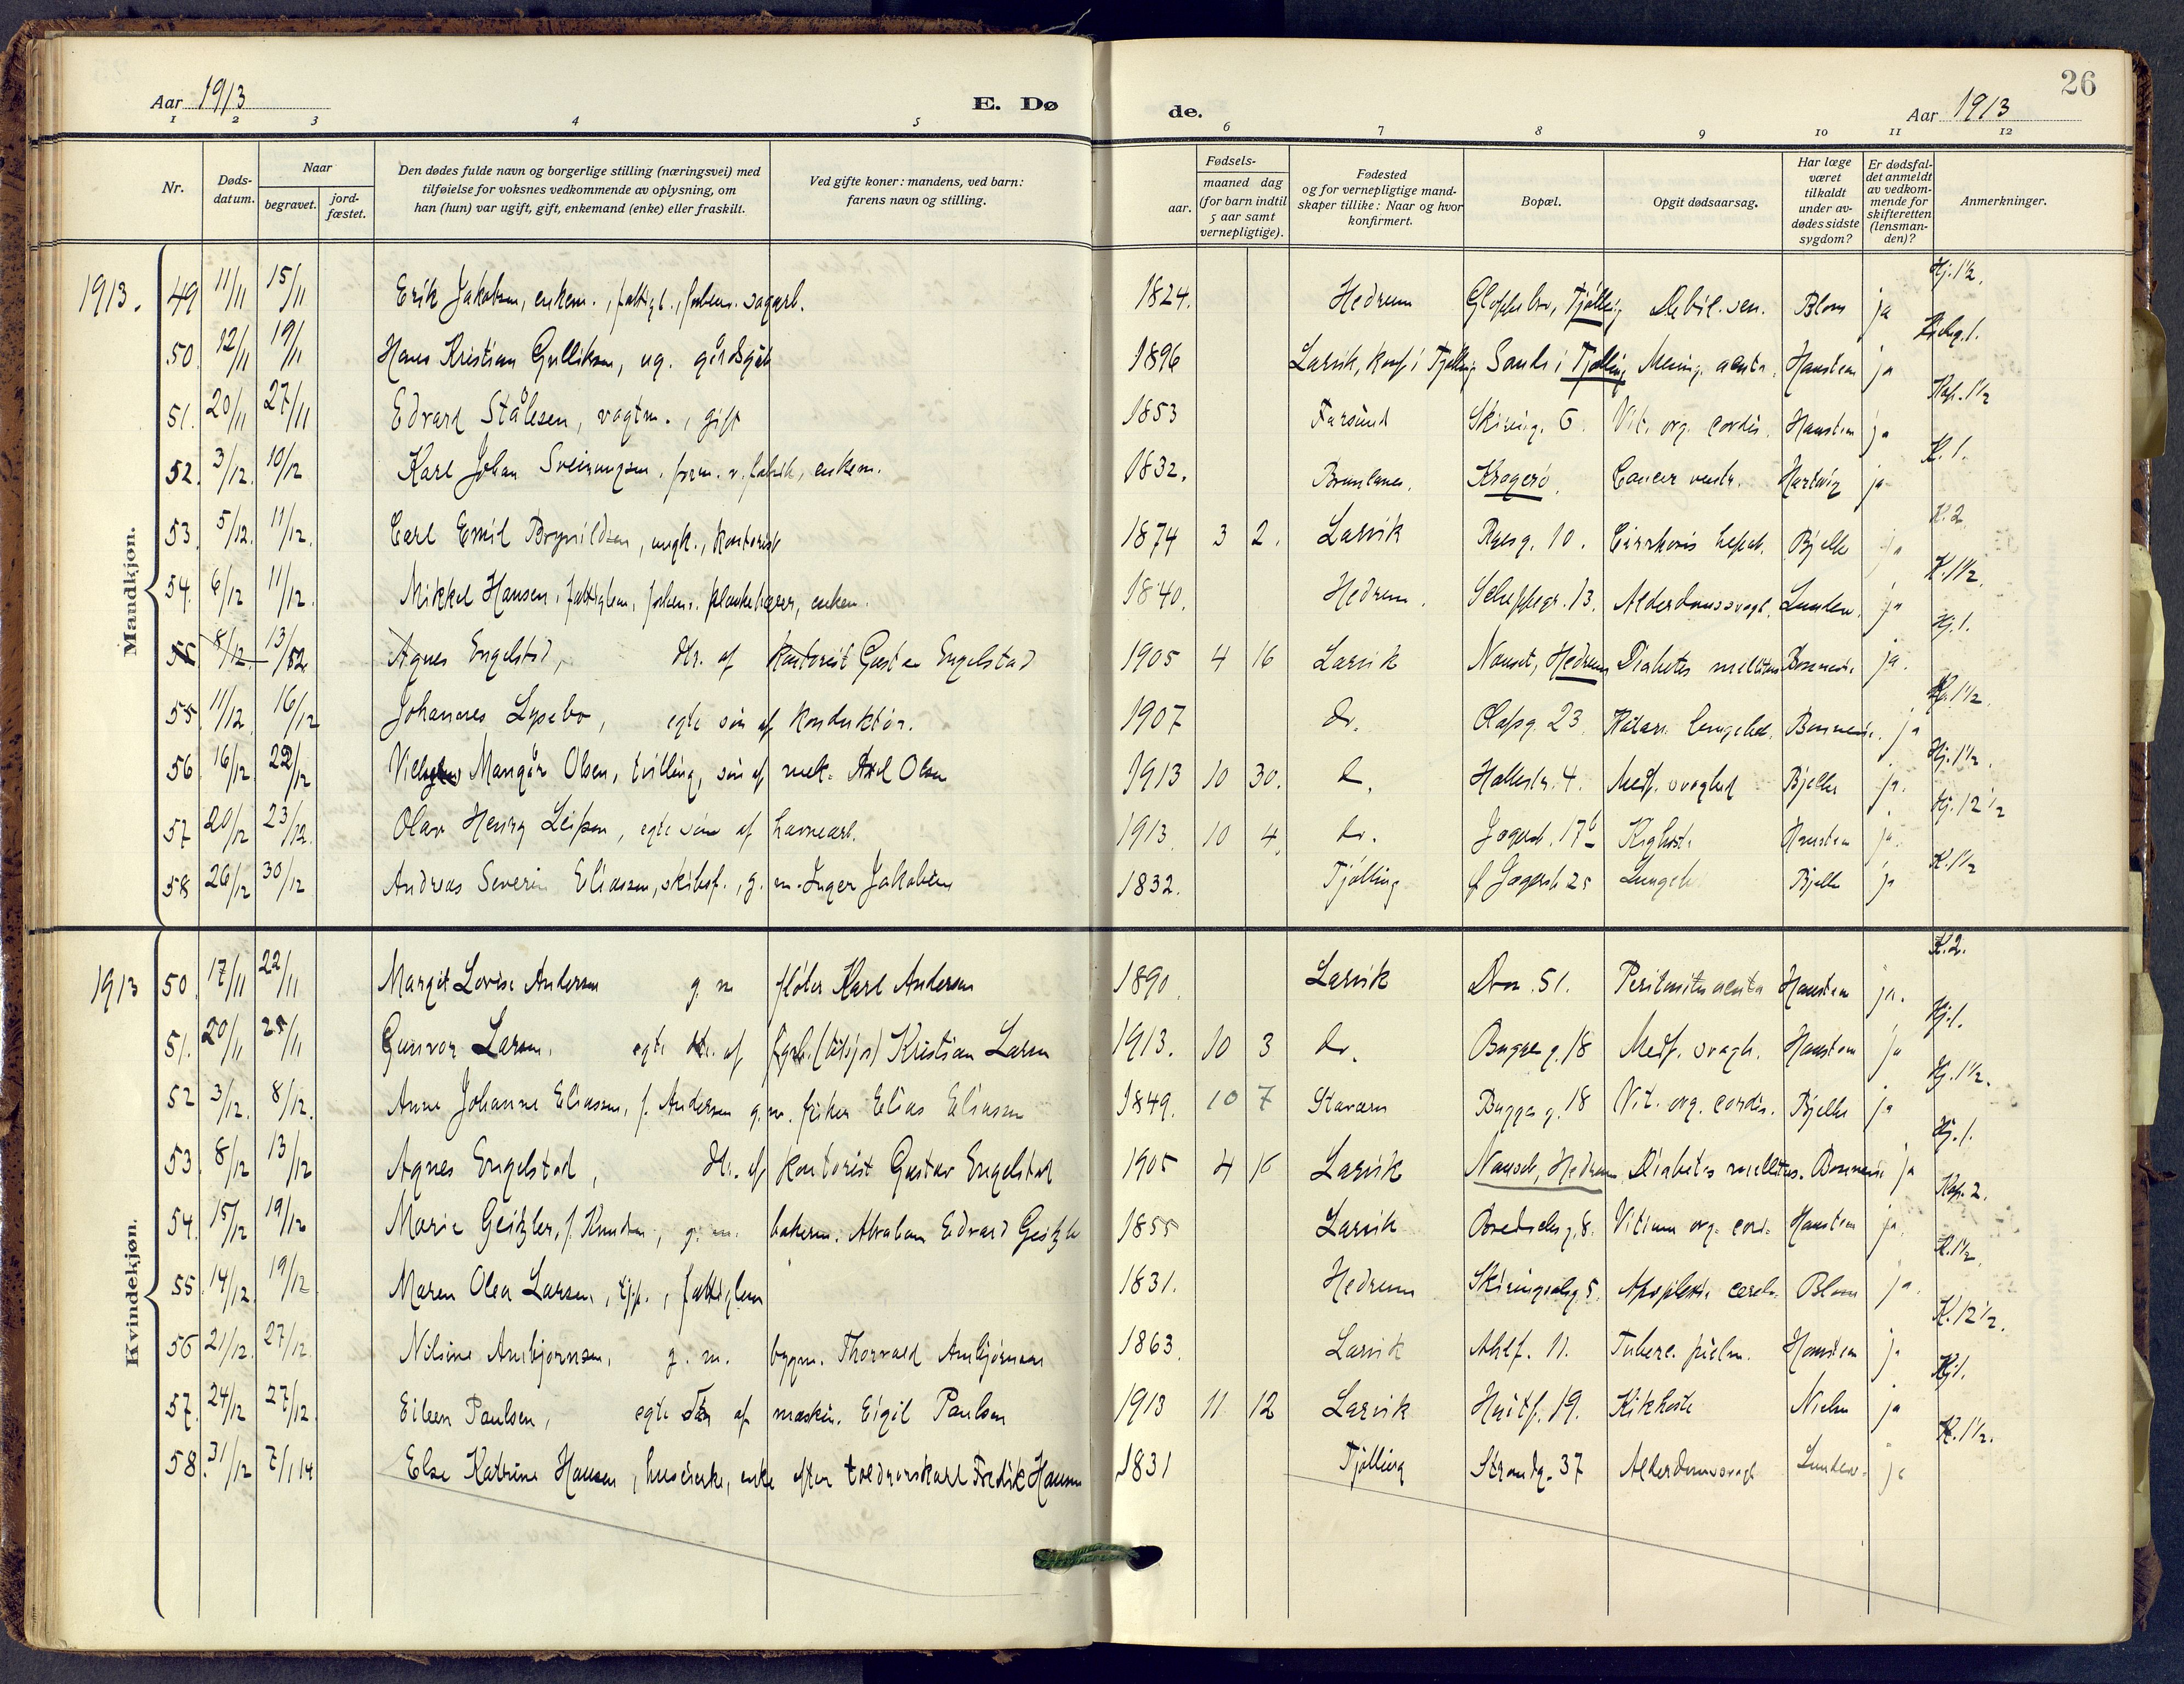 26
Aar 1913 E. Døde. Aar 1913
1 2 3 4 5 6 7 8 9 10 11 12
Nr. Døds-datum. Naar begravet. jord-fæstet. Den dødes fulde navn og borgerlige stilling (næringsvei) med tilføielse for voksnes vedkommende av oplysning, om han (hun) var ugift, gift, enkemand (enke) eller fraskilt. Ved gifte koner: mandens, ved barn: farens navn og stilling. Fødsels- aar. maaned dag (for barn indtil 5 aar samt vernepligtige). Fødested og for vernepligtige mand-skaper tillike: Naar og hvor konfirmert. Bopæl. Opgit dødsaarsag. Har læge været tilkaldt under av-dødes sidste sygdom? Er dødsfal-det anmeldt av vedkom-mende for skifteretten (lensman-den)? Anmerkninger.
Mandkjøn.
1913. 49 11/11 15/11 Erik Jakobsen, enkem., fattigl., forhenv. sagarb. 1824. Hedrum Tjølling Debil. sen. Blom ja Hj. 1½.
50. 12/11 19/11 Hans Kristian Gulliksen, ug. gårdsgut 1896 Larvik, konf i Tjølling Sande i Tjølling Mening. acuta. Hansteen ja
51. 20/11 27/11 Edvard Stålesen, vagtm., gift 1853 Farsund Skiringg. 6. Vit. org. cordis. Hansteen ja Kap. 1½
52. 3/12. 10/12 Karl Johan Sveinungsen, form. v. fabrik, enkem. 1832. Brunlanes. Kragerø. Cancer ventr. Hartvig ja K. 1.
53. 5/12. 11/12. Carl Emil Brynildsen, ungk., kontorist 1874 3 2. Larvik 10. Cirrhosis hepat. Bjelke ja K. 2
54. 6/12 11/12. Mikkel Hansen, fattiglem, forhenv. plankebærer, enkem. 1840. Hedrum. 13. Alderdomssvagh. Lunden. ja K. 1½.
55. 8/12. 13/12 Agnes Engelstad, dtr. af kontorist Gustav Engelstad 1905 4 16 Larvik Nanset, Hedrum Diabetes mellitus ja. Hj. 1.
55. 11/12 16/12 Johannes Lysebo, egte søn af konduktør. 1907 do. Olafsg. 23. Katarr. lungebet. ja 1½.
56. 16/12. 22/12 Mangår Olsen, tvilling, søn af mek. Axel Olsen 1913 10 30. do. 4. Medf. svaghed Bjelke ja. Hj. 1½.
57 20/12 23/12. Olav Henry Leifsen, egte søn af havnearb. 1913. 10 4. do. Jegersb. 17b Kighoste Hansteen ja. Hj. 12½
58 26/12 30/12 Andreas Severin Eliassen, skibsf., g. m. Inger Jakobsen 1832. Tjølling Jegersb 25 Bjelke ja K. 1½
Kvindekjøn.
1913 50. 17/11 22/11 Margit Lovise Andersen g. m fløter Karl Andersen 1890. Larvik 51. Peritonitis acuta Hansteen ja. K. 2.
51. 20/11 25/11 Gunvor Larsen. egte dtr. af Kristian Larsen 1913. 10 3 do. Bugges g. 18 Medf. svagh. Hansteen ja Hj. 1.
52 3/12. 8/12. Anne Johanne Eliassen, f. Andersen g. m. fisker Elias Eliassen 1849. 10 7 Stavern Bugges g. 18 Vit. org. cordis. Bjelke ja Hj. 1½.
53. 8/12 13/12 Agnes Engelstad, dtr. af kontorist Gustav Engelstad 1905 4 16 Larvik Nanset, Hedrum Diabetes mellitus. ja Hj. 1.
54. 15/12 19/12 Marie Geitzler, f. Knudsen, g. m. bakerm. Abraham Edvard 1855 Larvik 8. Vitium org. cord. Hansteen ja. Kap. 2.
55 14/12. 19/12. Maren Olea Larsen, fattiglem 1831. Hedrum Skiringsalsg. 5. Apoplexia cerebr. Blom ja. K. 1½.
56 21/12. 27/12. Nilsine Arnbjørnsen, g. m. bygm. Thorvald Arnbjørnsen 1863. Larvik 11. Tuberc. pulm. Hansteen ja K. 12½.
57. 24/12 27/12. Eileen Paulsen, egte dtr af maskin. Eigil Paulsen 1913 11 12 Larvik 19. Kikhoste ja Hj. 1.
58. 31/12 7/1 14 Else Katrine Hansen, enke efter Fredrik Hansen 1831 Tjølling Strandg. 37 Alderdomssvagh. Lunden. ja K. 1½.